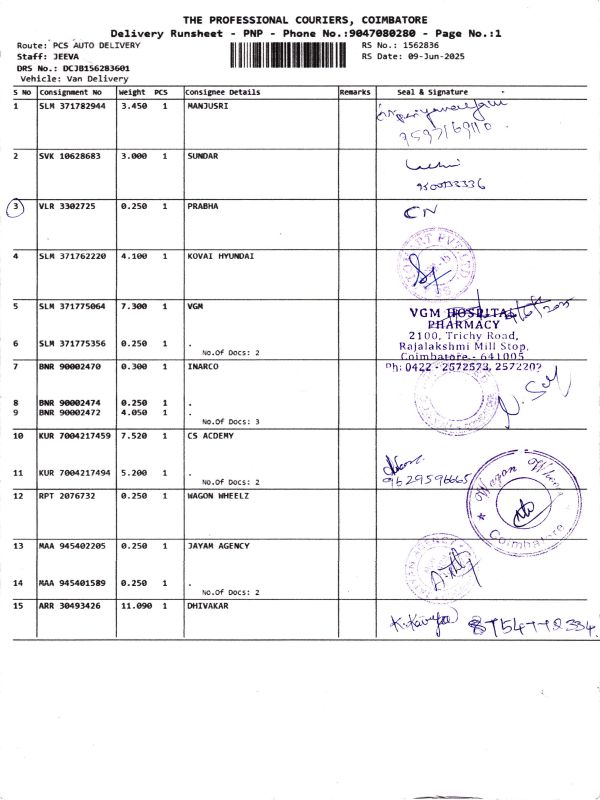 THE PROFESSIONAL COURIERS, COIMBATORE
Delivery Runsheet - PNP - Phone No.:9047080280 - Page No.:1
Route: PCS AUTO DELIVERY
RS No.: 1562836
Staff: JEEVA
RS Date: 09-Jun-2025
DRS No.: DCJB156283601
Vehicle: Van Delivery
S No Consignment No Weight PCS Consignee Details Remarks Seal & Signature
1 SLM 371782944 3.450 1 MANJUSRI
2 SVK 10628683 3.000 1 SUNDAR
3 VLR 3302725 0.250 1 PRABHA CN
4 SLM 371762220 4.100 1 KOVAI HYUNDAI
5 SLM 371775064 7.300 1 VGM
VGM HOSPITAL
PHARMACY
2100, Trichy Road,
6 SLM 371775356 0.250 1 . Rajalakshmi Mill Stop,
No.Of Docs: 2 Coimbatore - 641005
7 BNR 90002470 0.300 1 INARCO Ph: 0422 - 2572573, 2572202
8 BNR 90002474 0.250 1 .
9 BNR 90002472 4.050 1 .
No.Of Docs: 3
10 KUR 7004217459 7.520 1 CS ACDEMY
11 KUR 7004217494 5.200 1 . 9629596665
No.Of Docs: 2
12 RPT 2076732 0.250 1 WAGON WHEELZ
Wagon Wheelz
Coimbatore
13 MAA 945402205 0.250 1 JAYAM AGENCY
14 MAA 945401589 0.250 1 .
No.Of Docs: 2
15 ARR 30493426 11.090 1 DHIVAKAR